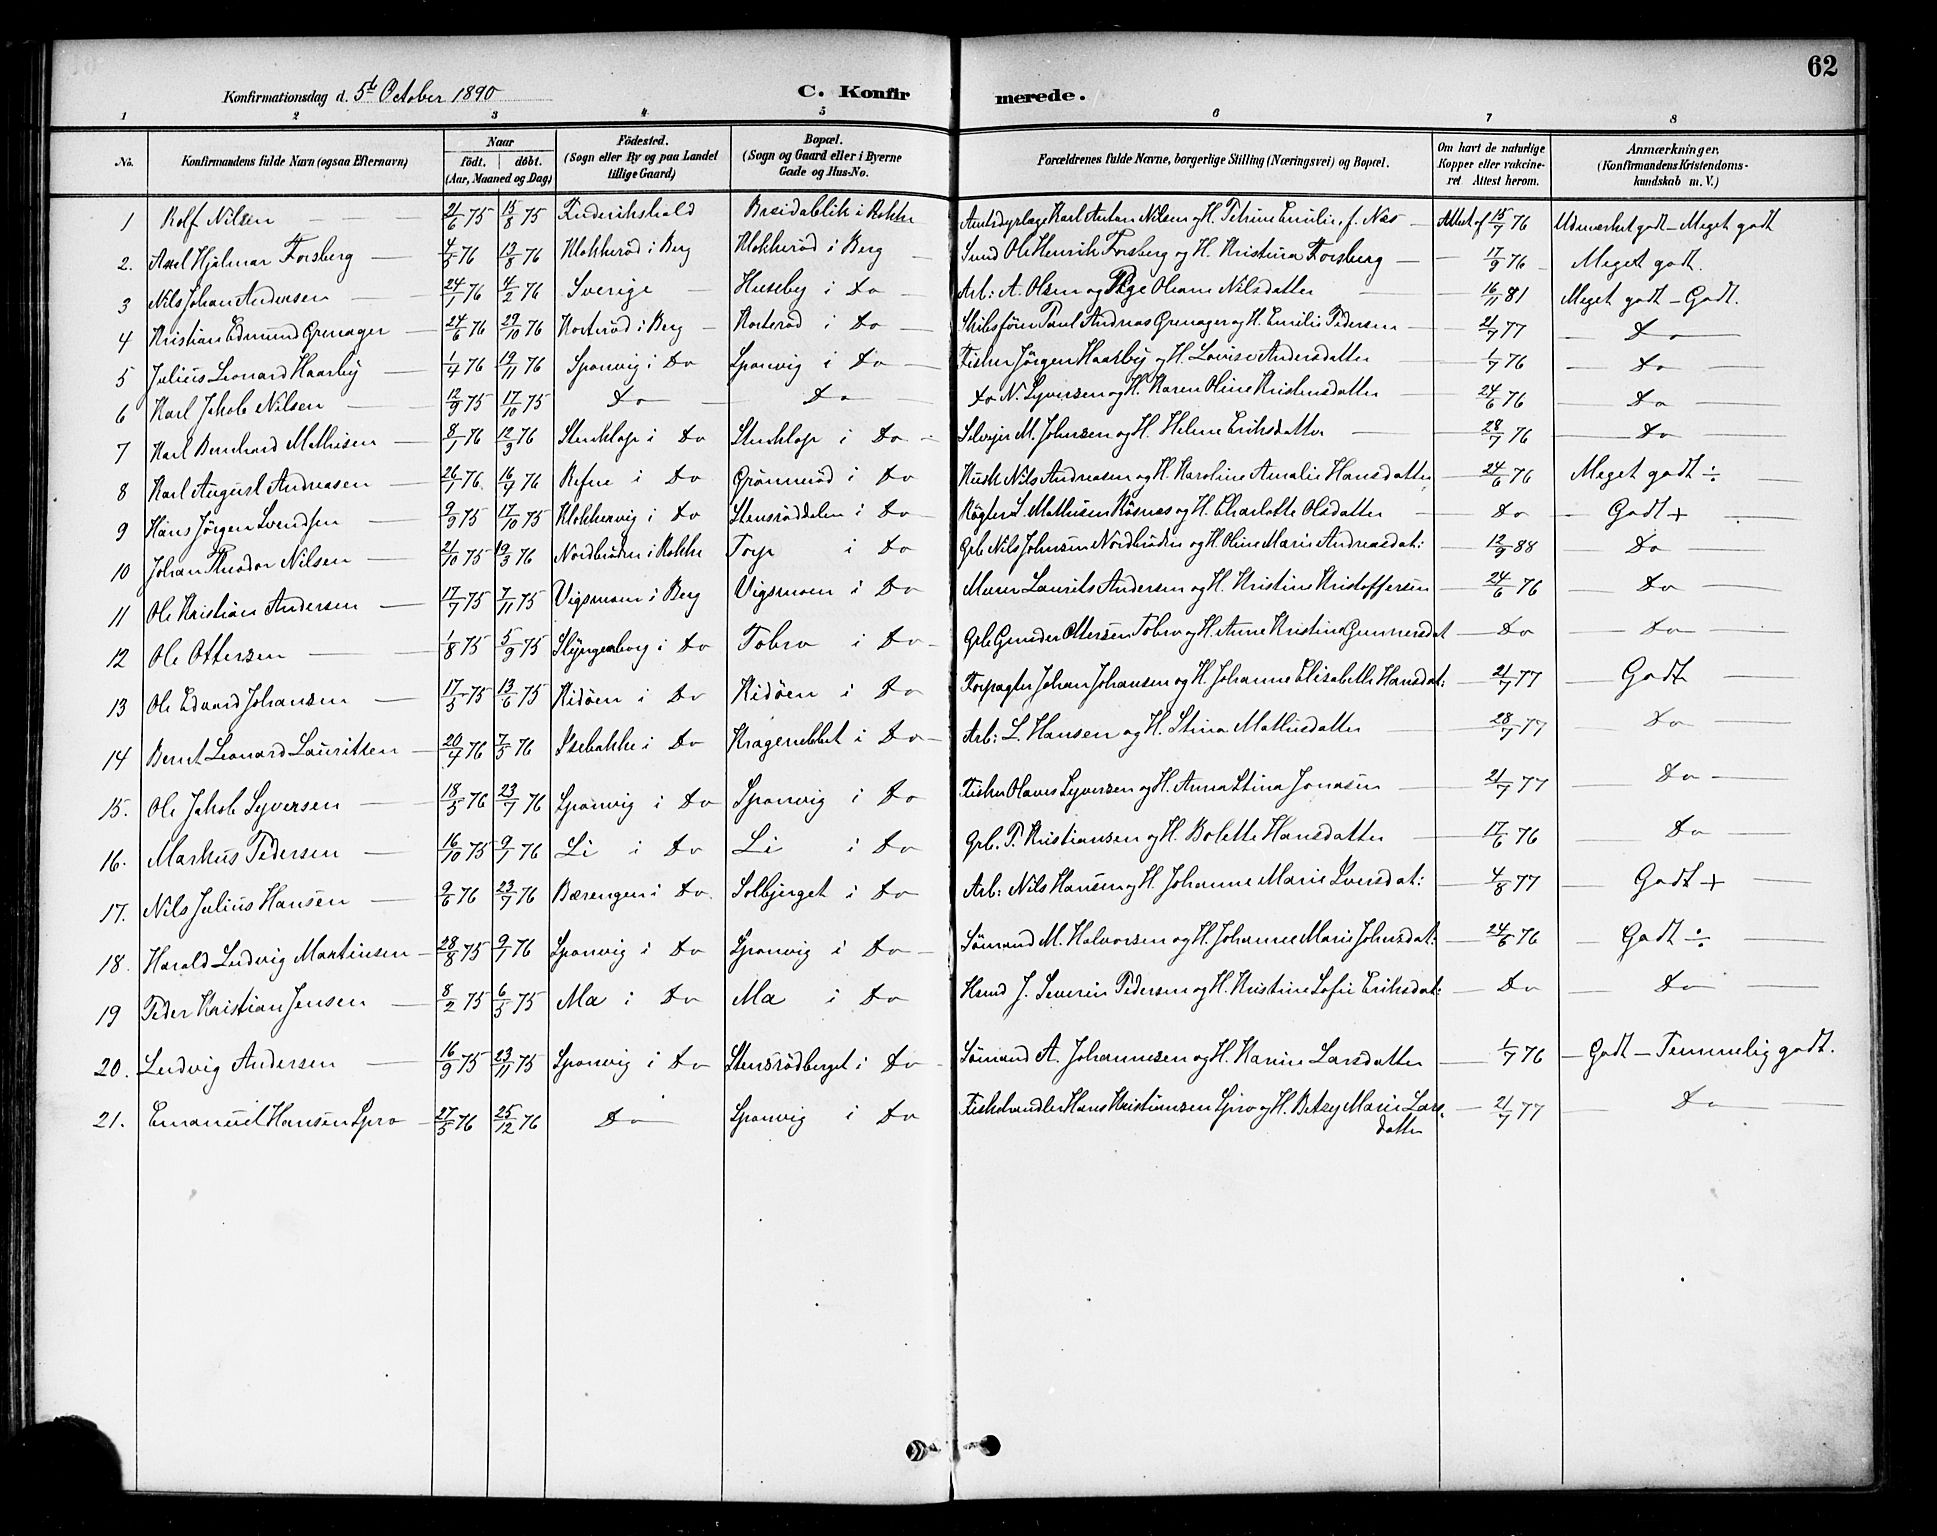 62
Konfirmationsdag d. 5te October 1890 C. Konfirmerede.
1 2 3 4 5 6 7 8
No. Konfirmandens fulde Navn (ogsaa Efternavn) Naar født. døbt. (Aar, Maaned og Dag) Födested. (Sogn eller By og paa Landet tillige Gaard) Bopæl. (Sogn og Gaard eller i Byerne Gade og Hus-No. Forældrenes fulde Navne, borgerlige Stilling (Næringsvei) og Bopæl. Om havt de naturlige Kopper eller vakcineret Attest herom. Anmærkninger. (Konfirmandens Kristendomskundskab m. V.)
1 Rolf Nilsen 21/6 75 15/8 75 Frederikshald Breidablik i Rokke Karl Anton Nilsen og H. Petrine Emilie, f. Næs Attest af 15/7 76 Udmærket godt - Meget godt
2. Axel Hjalmar Forsberg 4/5 76 13/8 76 Klokkeröd i Berg Klokkeröd i Berg Smed Ole Henrik Forsberg og H. Kristina Forsberg 17/9 76 Meget godt.
3 Nils Johan Andersen 24/1 76 4/2 76 Sverige Huseby i Do Arb: A. Olsen og Pige Oliane Nilsdatter 16/11 81 Meget godt - Godt.
4 Kristian Edmund Grenager 24/6 76 29/10 76 Korteröd i Berg Korteröd i Do Skibsförer Paul Andreas Grenager og H. Emilie Pedersen 21/7 77 Do
5 Julius Leonard Haarby 1/4 76 19/11 76 Sponvig i Do Sponvig i Do Fisker Jörgen Haarby og H. Lovise Andersdatter 1/7 76 Do
6 Karl Jakob Nilsen 12/9 75 17/10 75 Do Do Do N. Syversen og H. Karen Oline Kristensdatter 24/6 76 Do
7 Karl Bernhard Mathisen 8/1 76 12/3 76 Stenklop i Do Stenklop i Do Selvejer M. Johnsen og H. Helene Eriksdatter 28/7 76 Do
8 Karl August Andreasen 26/1 76 16/4 76 Refne i Do Grönneröd i Do Kusk Nils Andreasen og H. Karoline Amalie Hansdatter 24/6 76 Meget godt ÷
9 Hans Jörgen Svendsen 9/9 75 17/10 75 Klokkervig i Do Stensröddalen i Do Rögter L. Mathisen Rösnæs og H. Charlotte Olsdatter Do Godt +
10 Johan Theodor Nilsen 21/10 75 19/3 76 Nordbröden i Rokke Torp i Do Grb Nils Johnsen Nordbröden og H. Oline Marie Andreasdat: 12/9 88 Do
11 Ole Kristian Andersen 17/7 75 7/11 75 Vigsmoen i Berg Vigsmoen i Do Murer Laurits Andersen og H. Kristine Kristoffersen 24/6 76 Do
12 Ole Ottersen 1/8 75 5/9 75 Slyngenborg i Do Tobro i Do Grb Gunder Ottersen Tobro og H. Anne Kristine Gunnersdat Do Do
13 Ole Edvard Johansen 17/5 75 13/6 75 Kidöen i Do Kidöen i Do Forpagter Johan Johansen og H. Johanne Elisabeth Hansdat: 21/7 77 Godt
14 Bernt Leonard Lauritsen 20/4 76 7/5 76 Isebakke i Do Kragenebbet i Do Arb: L. Hansen og H. Stina Mathisdatter 28/7 77 Do
15. Ole Jakob Syversen 18/5 76 23/7 76 Sponvig i Do Sponvig i Do Fisker Olaves Syversen og H. Anna Stina Jonasen 21/7 77 Do
16. Markus Pedersen 16/10 75 9/1 76 Li i Do Li i Do Grb. P. Kristiansen og H. Bolette Hansdatter 17/6 76 Do
17. Nils Julius Hansen 9/6 76 23/7 76 Bærengen i Do Solbjerget i Do Arb: Nils Hansen og H. Johanne Marie Iversdat: 4/8 77 Godt +
18. Harald Ludvig Martinsen 28/8 75 9/1 76 Sponvig i Do Sponvig i Do Sömand M. Halvorsen og H. Johanne Marie Johnsdat: 24/6 76 Godt ÷
19 Peder Kristian Jensen 8/2 75 6/5 75 Ma i Do Ma i Do Hsmd J. Severin Pedersen og H. Kristine Sofie Eriksdat: Do Do
20. Ludvig Andersen 16/9 75 23/11 75 Sponvig i Do Stensrödberget i Do Sömand A. Johannesen og H. Karine Larsdatter 1/7 76 Godt - Temmelig godt.
21. Emanuel Hansen Spro 27/5 76 25/12 76 Do Sponvig i Do Fiskehandler Hans Kristiansen Spro og H. Betzy Marie Larsdatter 21/7 77 Do